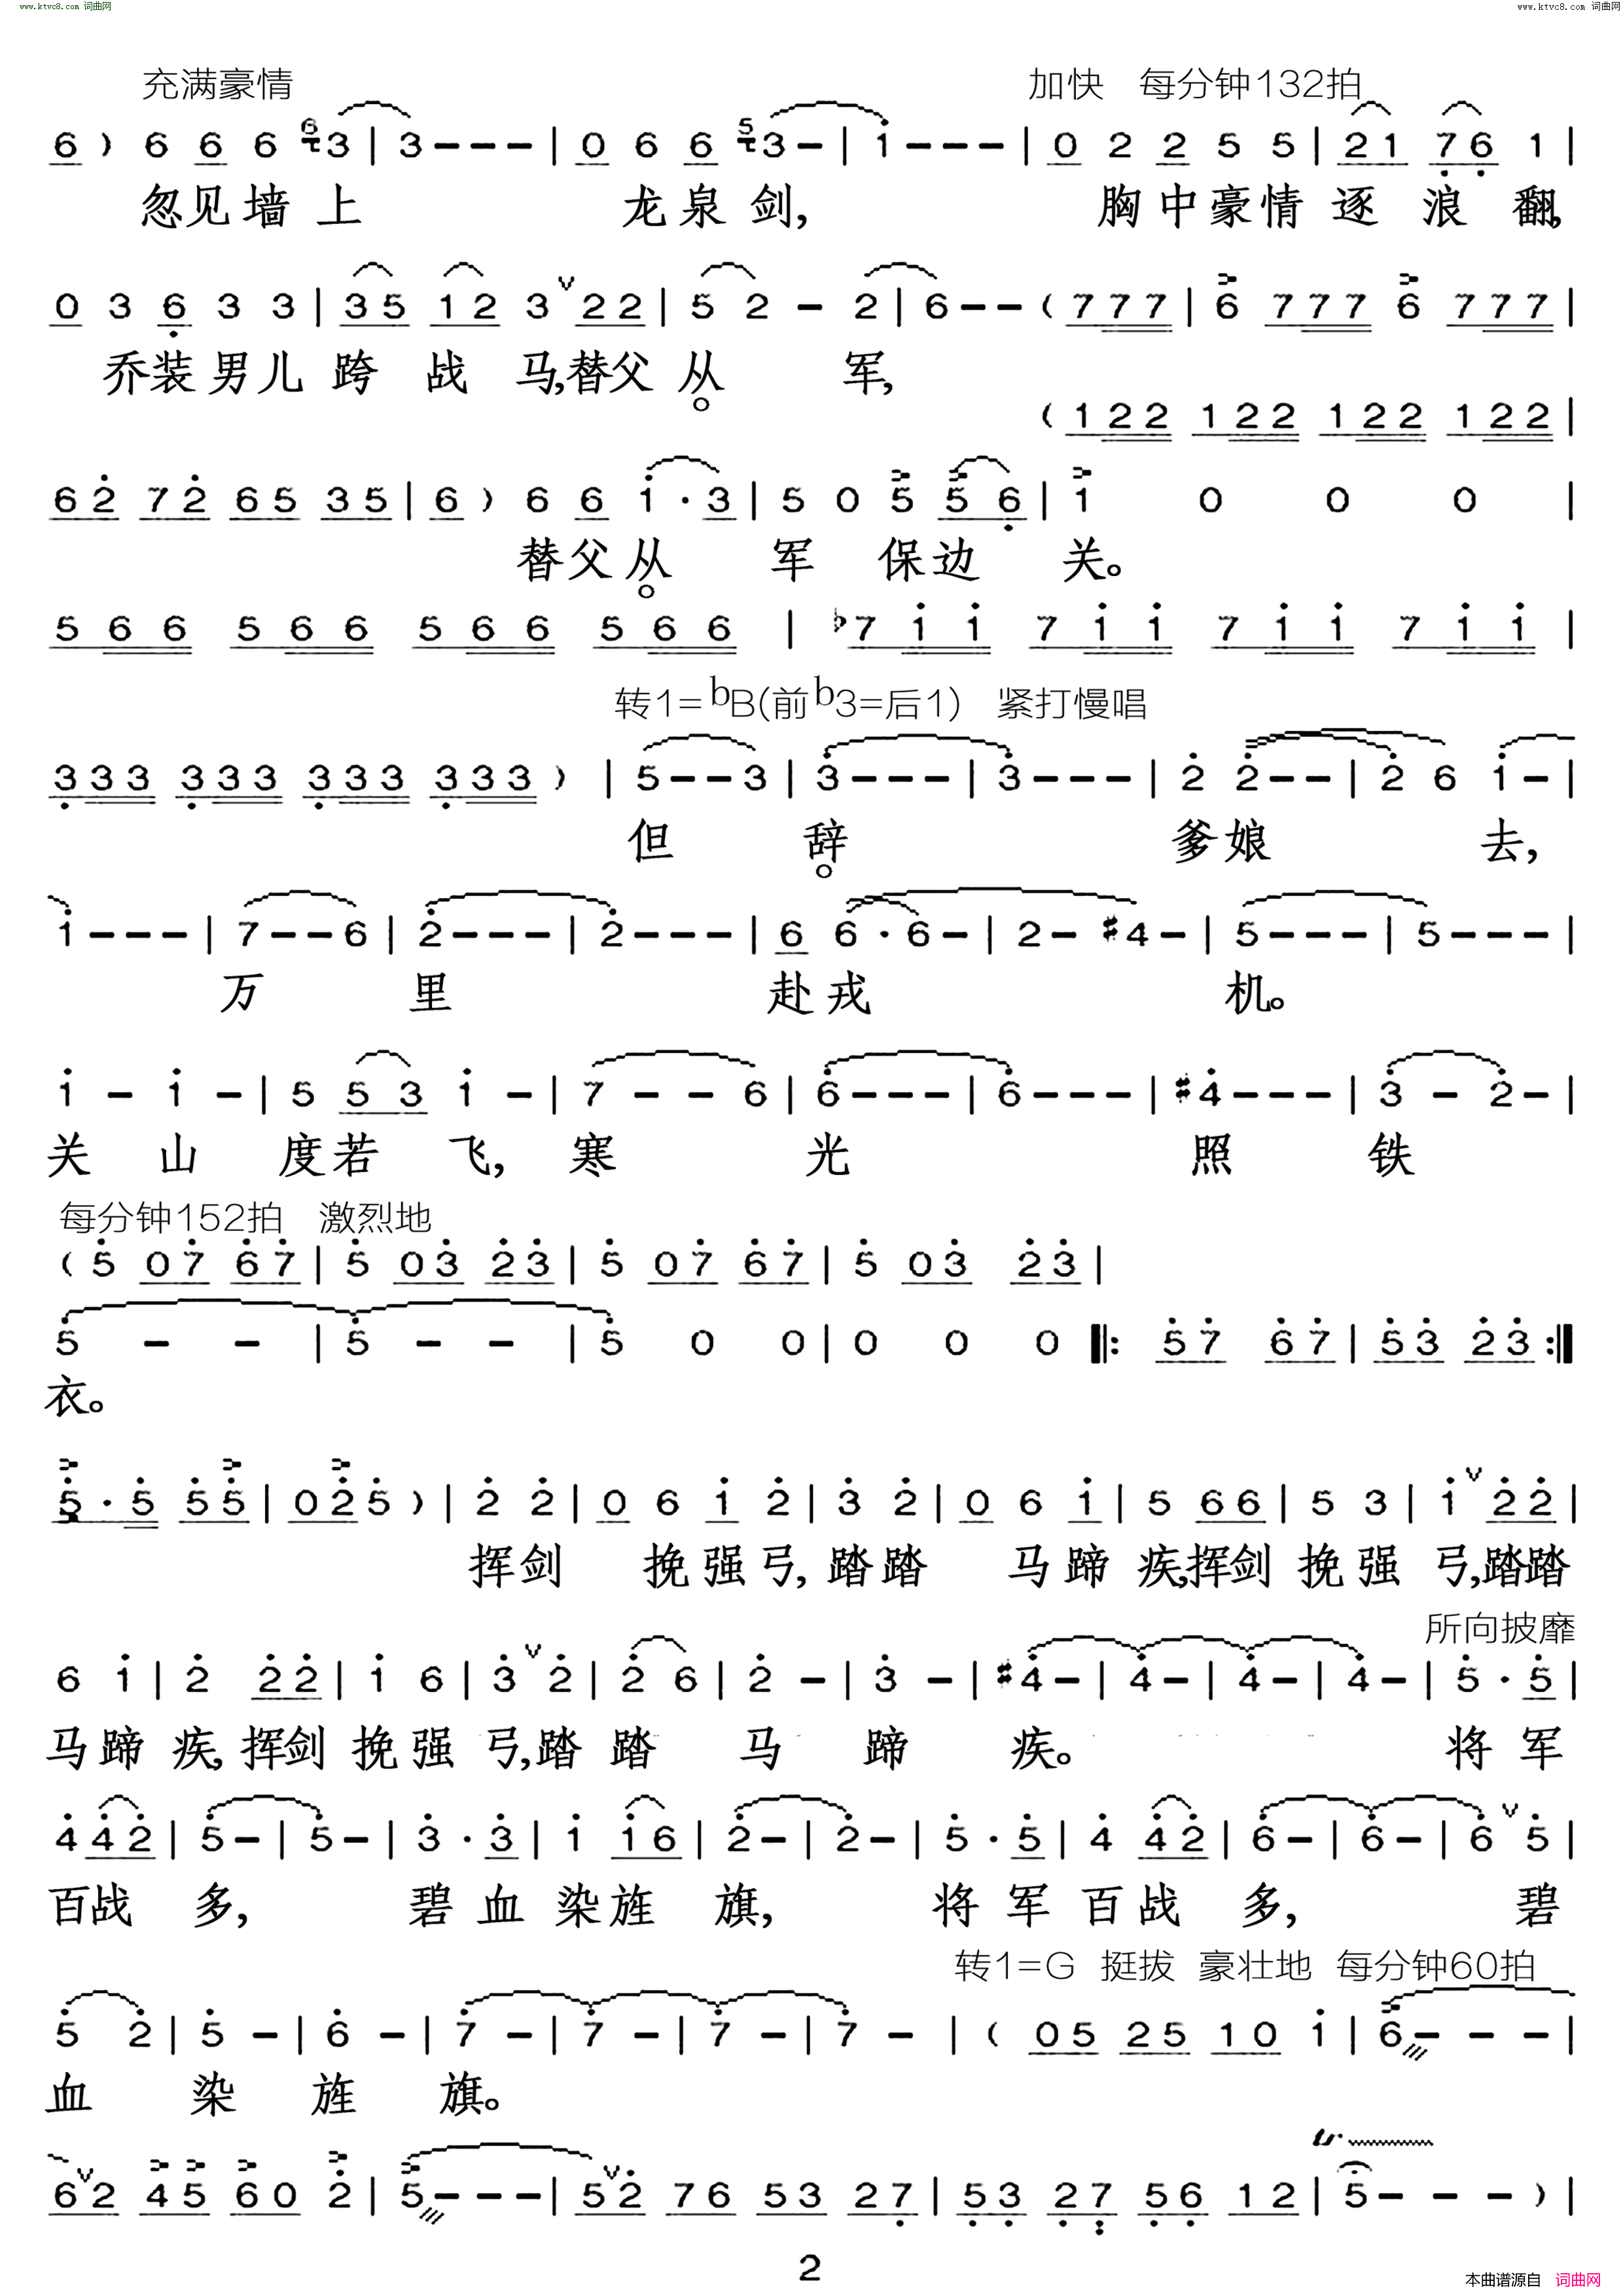 www.ktvc8.com 词曲网 www.ktvc8.com 词曲网
充满豪情 加快 每分钟132拍
6 ) 6 6 6 6 3 | 3 - - - | 0 6 6 5 3 - | 1 - - - | 0 2 2 5 5 | 2 1 7 6 1 |
忽见墙上 龙泉剑, 胸中豪情逐浪翻,
0 3 6 3 3 | 3 5 1 2 3 ∨ 2 2 | 5 2 - 2 | 6 - - ( 7 7 7 | 6 7 7 7 6 7 7 7 |
乔装男儿跨战马,替父从军,
( 1 2 2 1 2 2 1 2 2 1 2 2 |
6 2 7 2 6 5 3 5 | 6 ) 6 6 1 · 3 | 5 0 5 5 6 | 1 0 0 0 |
替父从军保边关。
5 6 6 5 6 6 5 6 6 5 6 6 | b7 1 1 7 1 1 7 1 1 7 1 1 |
转1=bB(前b3=后1) 紧打慢唱
3 3 3 3 3 3 3 3 3 3 3 3 ) | 5 - - 3 | 3 - - - | 3 - - - | 2 2 - - | 2 6 1 - |
但辞爹娘去,
1 - - - | 7 - - 6 | 2 - - - | 2 - - - | 6 6 · 6 - | 2 - #4 - | 5 - - - | 5 - - - |
万里赴戎机。
1 - 1 - | 5 5 3 1 - | 7 - - 6 | 6 - - - | 6 - - - | #4 - - - | 3 - 2 - |
关山度若飞,寒光照铁
每分钟152拍 激烈地
( 5 0 7 6 7 | 5 0 3 2 3 | 5 0 7 6 7 | 5 0 3 2 3 |
5 - - | 5 - - | 5 0 0 | 0 0 0 ‖: 5 7 6 7 | 5 3 2 3 :‖
衣。
5 · 5 5 5 | 0 2 5 ) | 2 2 | 0 6 1 2 | 3 2 | 0 6 1 | 5 6 6 | 5 3 | 1 ∨ 2 2 |
挥剑挽强弓,踏踏马蹄疾,挥剑挽强弓,踏踏
所向披靡
6 1 | 2 2 2 | 1 6 | 3 ∨ 2 | 2 6 | 2 - | 3 - | #4 - | 4 - | 4 - | 4 - | 5 · 5 |
马蹄疾,挥剑挽强弓,踏踏马蹄疾。将军
4 4 2 | 5 - | 5 - | 3 · 3 | 1 1 6 | 2 - | 2 - | 5 · 5 | 4 4 2 | 6 - | 6 - | 6 ∨ 5 |
百战多,碧血染旌旗,将军百战多,碧
转1=G 挺拔 豪壮地 每分钟60拍
5 2 | 5 - | 6 - | 7 - | 7 - | 7 - | 7 - | ( 0 5 2 5 1 0 1 | 6 - - - |
血染旌旗。
6 ∨ 2 4 5 6 0 2 | 5 - - - | 5 ∨ 2 7 6 5 3 2 7 | 5 3 2 7 5 6 1 2 | tr 5 - - - ) |
2
本曲谱源自 词曲网